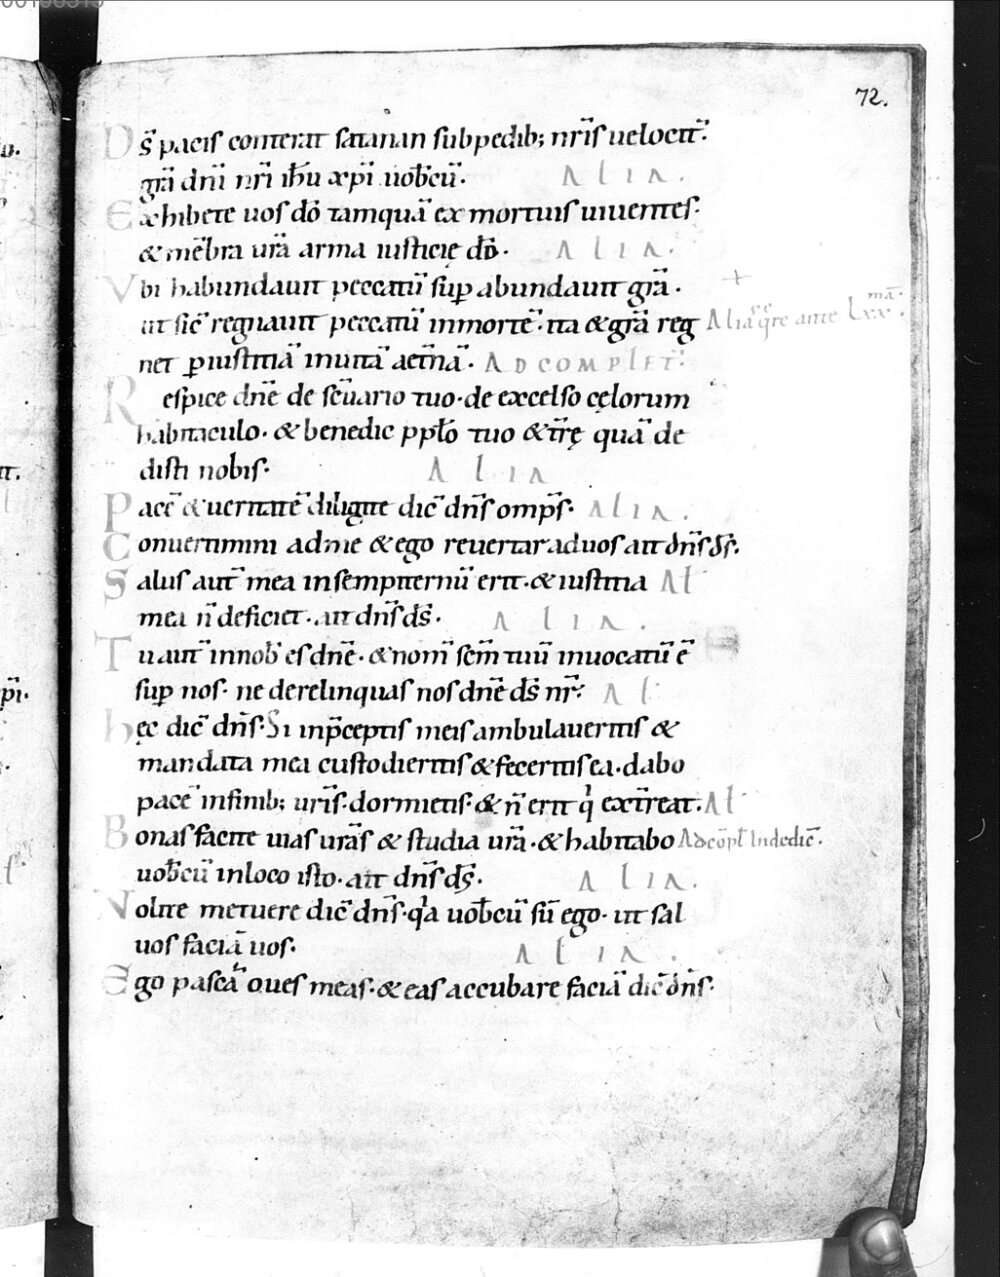 72.
Ds̄ pacis conterat satanan sub pedib; nr̄is uelocit̄.
gr̄a dn̄i nr̄i ih̄u xp̄i uob̄cū. ALIA.
Exhibete uos dō tamquā ex mortuis uiuentes.
& mēbra ur̄a arma iusticię dō. ALIA.
Vbi habundauit peccatū sup abundauit gr̄a.
ut sic̄ regnauit peccatū in morte. ita & gr̄a reg Alia q̄re ante Lxx mā.
net p iustitiā in uitā aet̄nā. AD COMPLET̄.
Respice dn̄e de sc̄uario tuo. de excelso cęlorum
habitaculo. & benedic pplo tuo & t̄rę quā de
disti nobis. ALIA
Pacē & ueritatē diligite dic̄ dn̄s omps̄. ALIA.
Conuertimini ad me & ego reuertar ad uos ait dn̄s ds̄.
Salus aut̄ mea in sempiternū erit. & iustitia Al
mea n̄ deficiet. ait dn̄s ds̄. ALIA.
Tu aut̄ in nob̄ es dn̄e. & nom̄ sc̄m tuū inuocatū ē
sup nos. ne derelinquas nos dn̄e ds̄ nr̄. Al
hęc dic̄ dn̄s. Si in p̄ceptis meis ambulaueritis &
mandata mea custodieritis & feceritis ea. dabo
pacē in finib; ur̄is. dormietis. & n̄ erit q̇ ext̄reat. Al
Bonas facite uias ur̄as & studia ur̄a. & habitabo Ad cōpl In dedic̄.
uob̄cū in loco isto. ait dn̄s ds̄. ALIA.
Nolite metuere dic̄ dn̄s. qa uob̄cū sū ego. ut sal
uos faciā uos. ALIA.
Ego pascā oues meas. & eas accubare faciā dic̄ dn̄s.